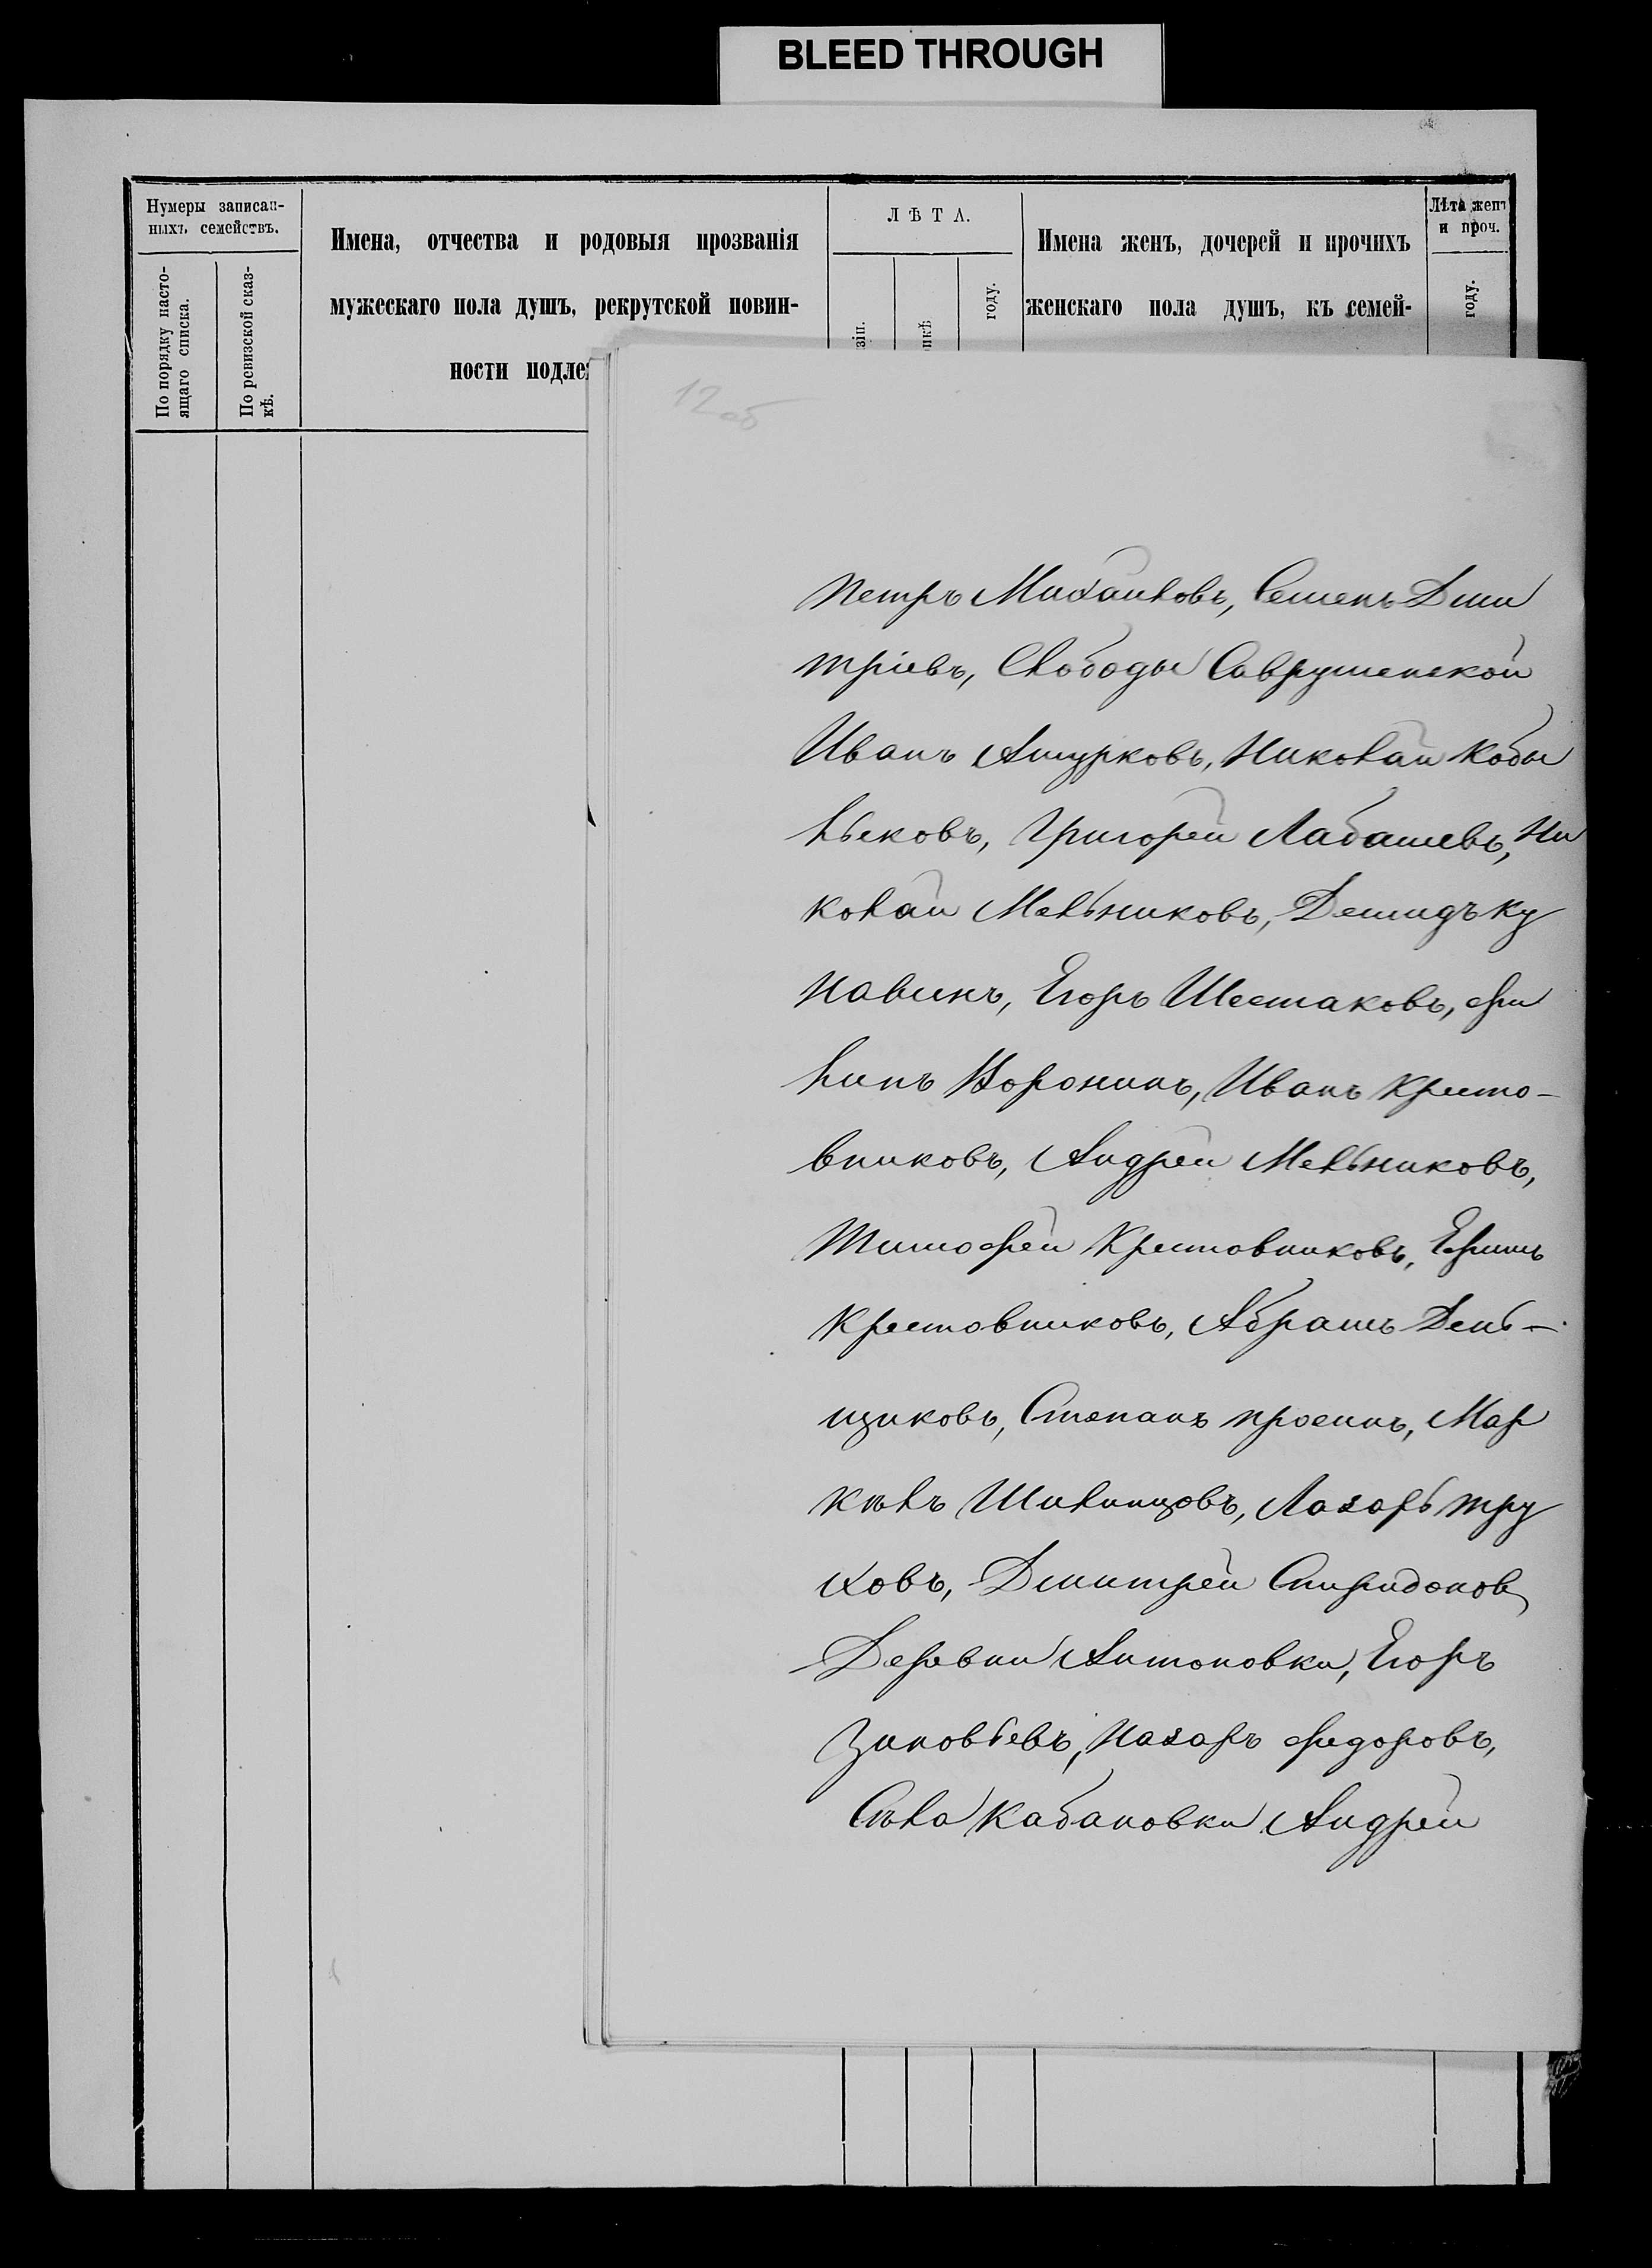 BLEED THROUGH
Нумеры записан-
ныхъ семействъ.
По порядку насто-
ящаго списка.
По ревизской сказ-
кѣ.
Имена, отчества и родовыя прозванія
мужескаго пола душъ, рекрутской повин-
ности подле
ЛѢТА.
зіи.
году.
Имена женъ, дочерей и прочихъ
женскаго пола душъ, къ семей-
Лѣта женъ
и проч.
году.
12 об
Петръ Михайловъ, Семенъ Дми
тріевъ, Слободы Саврушенской
Иванъ Ашурковъ, Николай Кобы
льсковъ, Григорей Лабашевъ, Ни
колай Мельниковъ, Демидъ Ку
навинъ, Егоръ Шестаковъ, Фи
липъ Воронинъ, Иванъ Кресто-
вниковъ, Андрей Мельниковъ,
Тимофей Крестовниковъ, Ефимъ
Крестовниковъ, Абрамъ День-
щиковъ, Степанъ Просинъ, Мар
кѣлъ Шилинцовъ, Лазарь Тру
ховъ, Дмитрей Спиридонов
Деревни Антоновки, Егоръ
Зиновьевъ, Назаръ Федоровъ,
Сѣла Кабановки Андрей